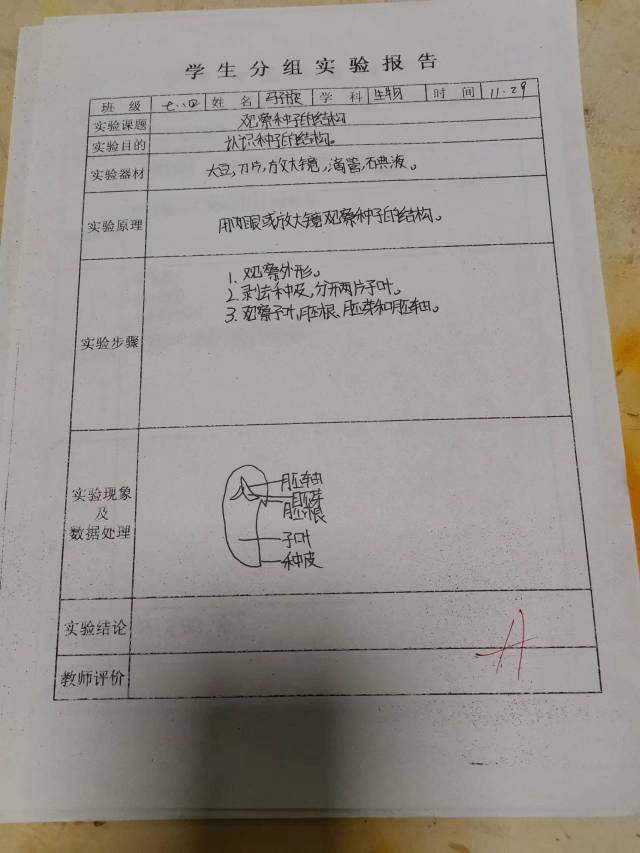 学生分组实验报告
班级 七、四 姓名 学科 生物 时间 11.29
实验课题 观察种子的结构
实验目的 认识种子的结构。
实验器材 大豆,刀片,放大镜,滴管,石典液。
实验原理 用肉眼或放大镜观察种子的结构。
实验步骤
1. 观察外形。
2. 剥去种皮,分开两片子叶。
3. 观察子叶,胚根、胚芽和胚轴。
实验现象
及
数据处理
胚轴
胚芽
胚根
子叶
种皮
实验结论
教师评价